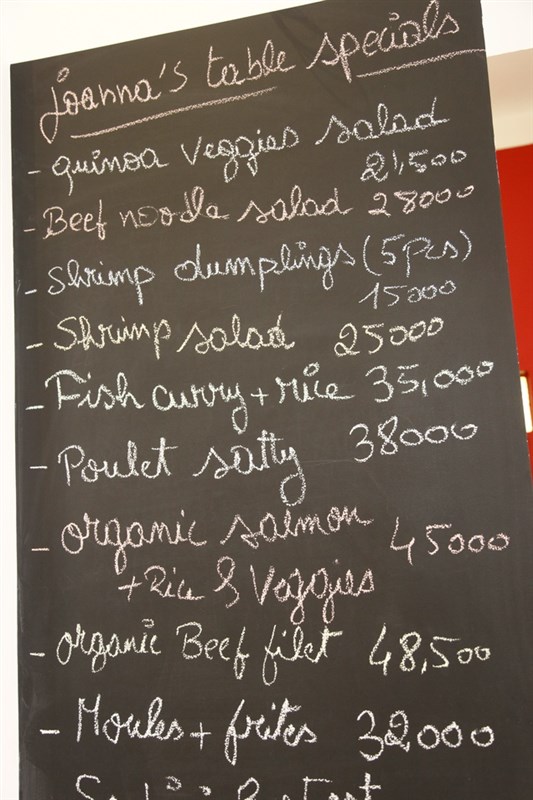 joanna's table specials
- quinoa veggies salad
21,500
- Beef noodle salad 28000
- Shrimp dumplings (5pcs)
15000
- Shrimp salad 25000
- Fish curry + rice 35,000
- Poulet satty 38000
- organic salmon 45000
+ Rice & Veggies
- organic Beef filet 48,500
- Moules + frites 32000